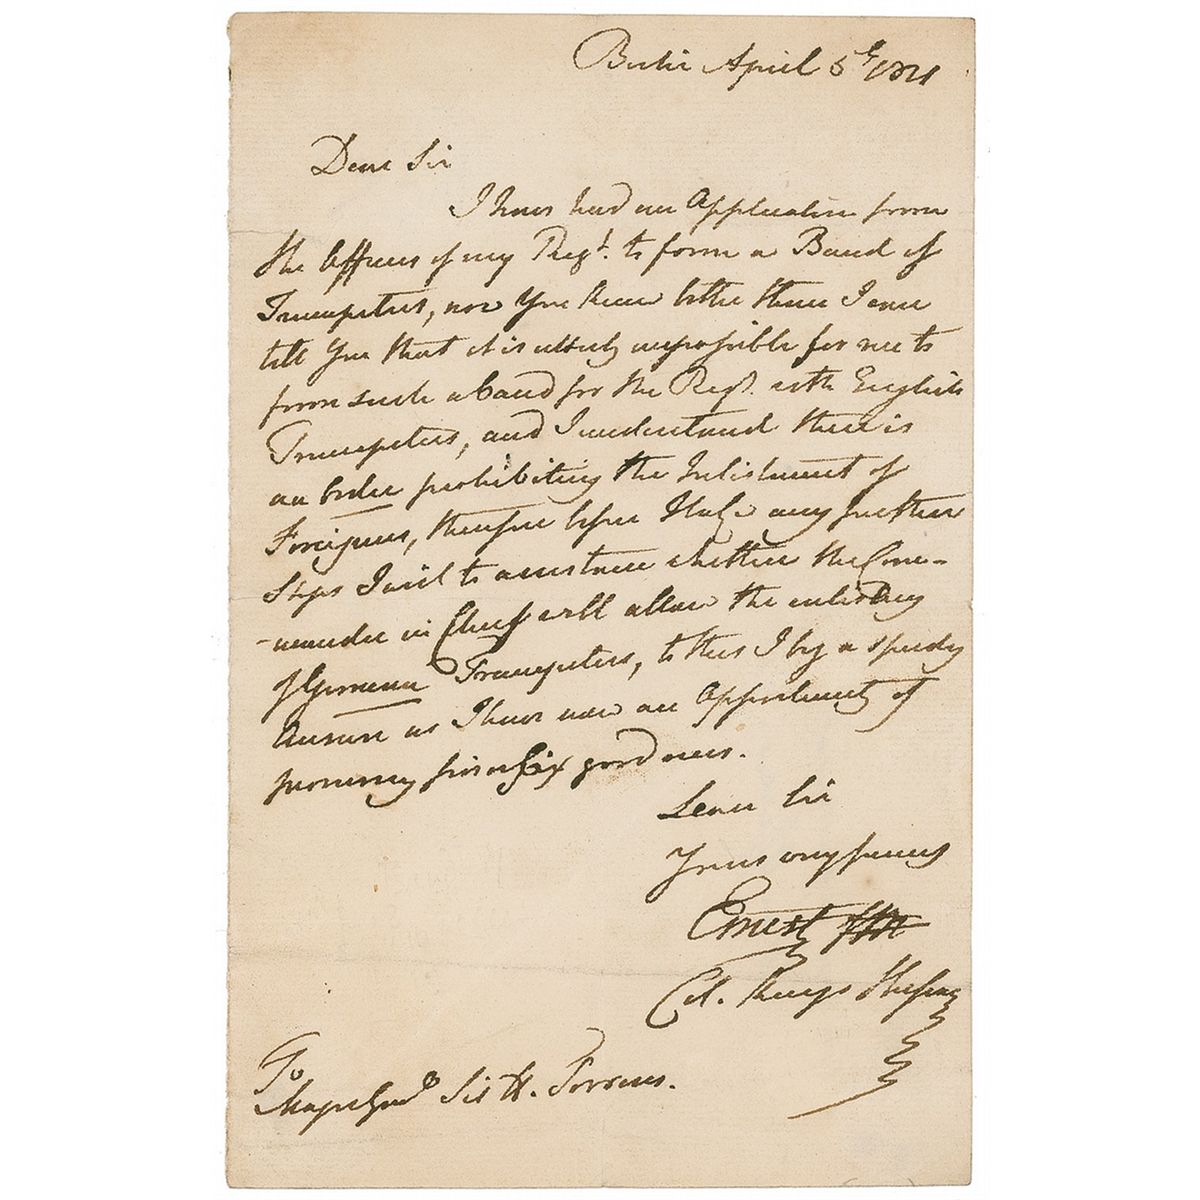 Berlin April 5th 1821
Dear Sir
I have had an Application from
the Officers of my Regt. to form a Band of
Trumpeters, now You know better than I can
tell You that it is utterly impossible for me to
form such a band for the Regt. with English
Trumpeters, and I understand there is
an Order prohibiting the Inlistment of
Foreigners, therefore before I take any further
Steps I wish to ascertain whether the Com-
-mander in Chief will allow the enlisting
of German Trumpeters, to this I beg a speedy
Answer as I have now an Opportunity of
procuring five or Six good ones.
Dear Sir
Yours very sincerely
Ernest
Col. Kings Hussars
To
Major Genl Sir H. Torrens.